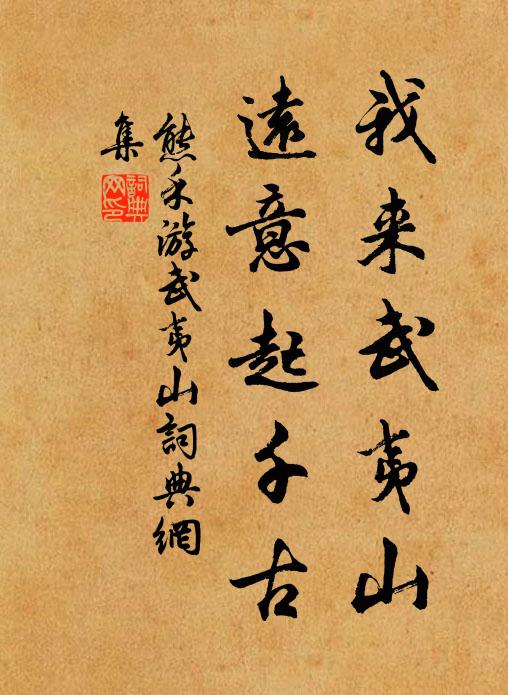 我来武夷山
遠意起千古
熊禾游武夷山詞典網
集
詞典
网印